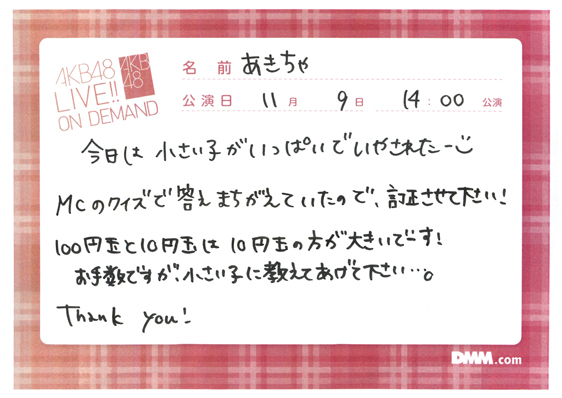 AKB48
LIVE!!
ON DEMAND
AKB
48
名 前 あきちゃ
公演日 11月 9日 14:00 公演
今日は 小さい子がいっぱいでいやされたー
MCのクイズで答えまちがえていたので、訂正させて下さい!
100円玉と10円玉は10円玉の方が大きいでーす!
お手数ですが、小さい子に教えてあげて下さい…。
Thank you!
DMM.com